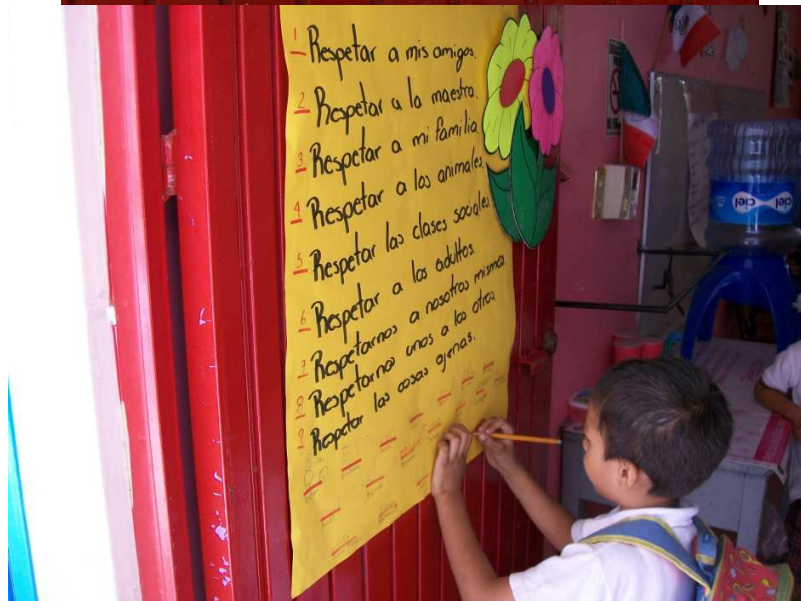 1 Respetar a mis amigos.
2 Respetar a la maestra.
3 Respetar a mi familia
4 Respetar a los animales.
5 Respetar las clases sociales
6 Respetar a los adultos.
7 Respetarnos a nosotros mismos.
8 Respetarnos unos a los otros
9 Respetar las cosas ajenas.
ciel
ciel